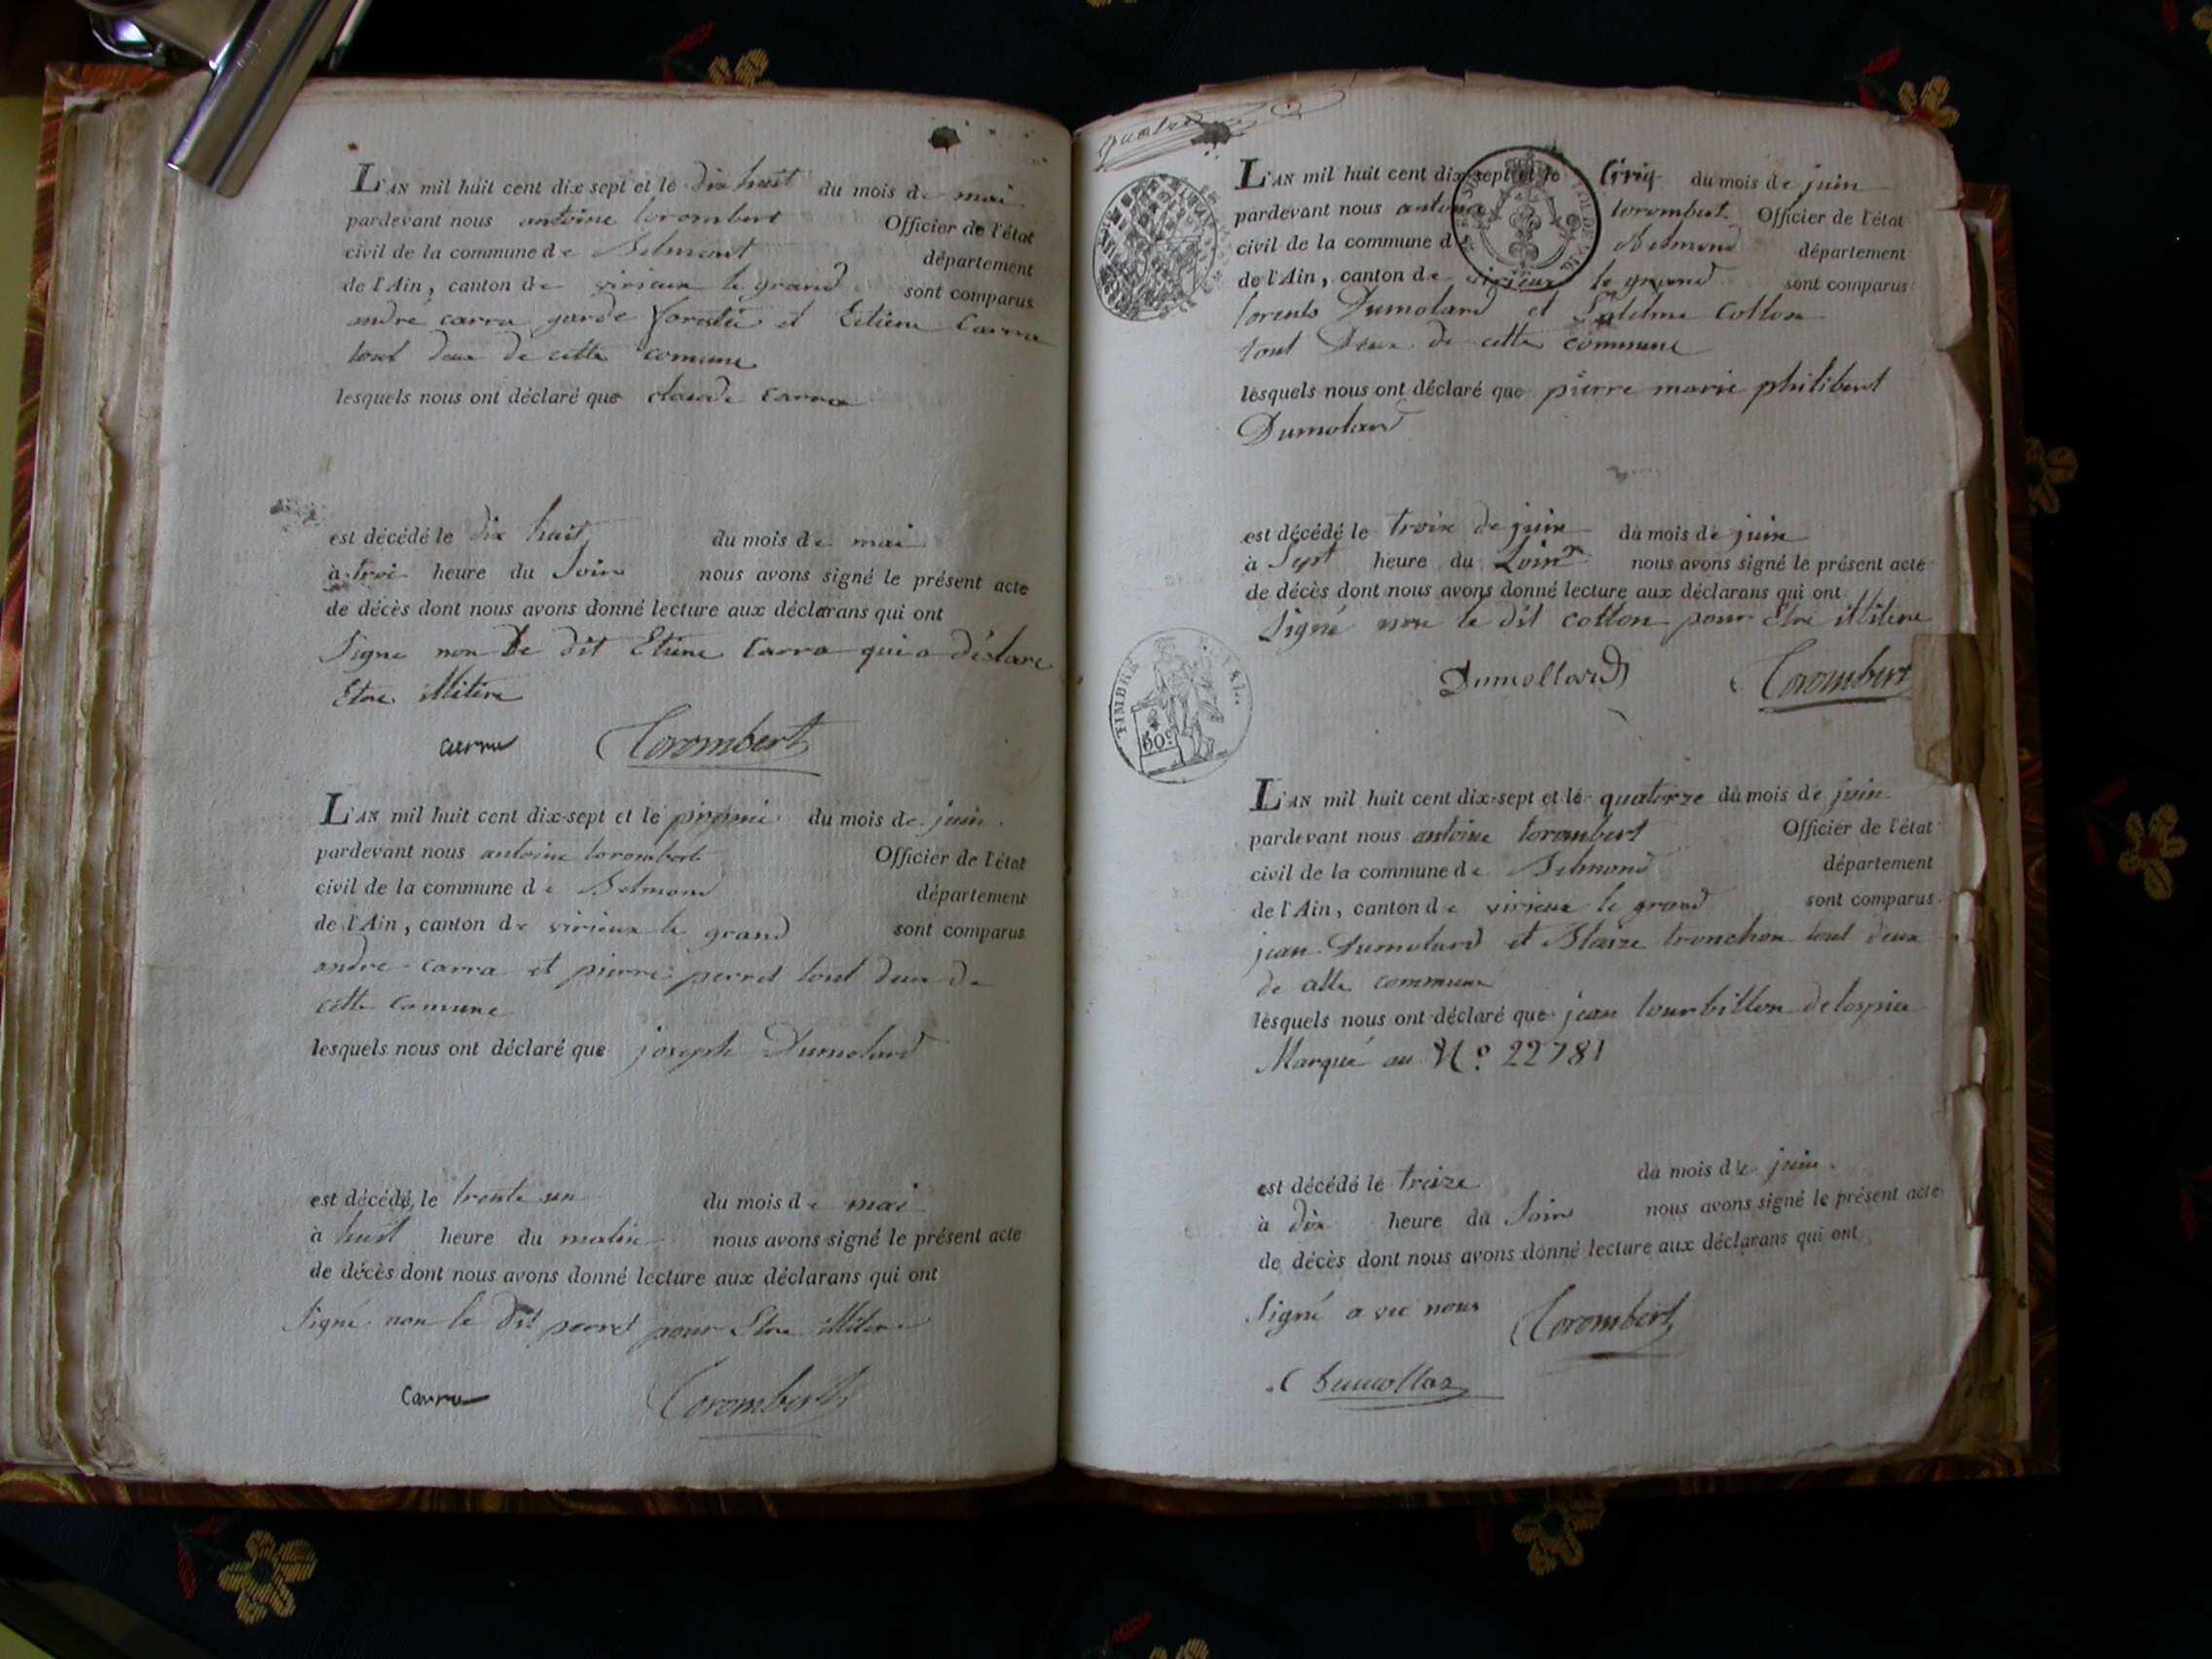 L'AN mil huit cent dix sept et le dix huit du mois de mai
pardevant nous antoine Corombert Officier de l'état
civil de la commune de Belmont département
de l'Ain, canton de virieux le grand sont comparus
andré carra garde forestié et Etiene Carra
tout deux de cette comune
lesquels nous ont déclaré que claude Carra
est décédé le dix huit du mois de mai
à troi heure du Soir nous avons signé le présent acte
de décès dont nous avons donné lecture aux déclarans qui ont
Signe non le dit Etiene Carra qui a déclare
Etre illitere
carra Corombert
L'AN mil huit cent dix-sept et le premie du mois de juin
pardevant nous antoine Corombert Officier de l'état
civil de la commune de Belmond département
de l'Ain, canton de virieux le grand sont comparus
andre carra et pierre perret tout deux de
cette Comune
lesquels nous ont déclaré que joseph Dumolard
est décédé le trente un du mois de mai
à huit heure du matin nous avons signé le présent acte
de décès dont nous avons donné lecture aux déclarans qui ont
Signé non le dit perret pour Etre illitere
Carra Corombert
quatre
L'AN mil huit cent dix sept et le Cinq du mois de juin
pardevant nous antoine Corombert Officier de l'état
civil de la commune d Belmond département
de l'Ain, canton de virieux le grand sont comparus
Dumolard et Cotton
tout Deux de cette commune
lesquels nous ont déclaré que pierre marie philibert
Dumolard
est décédé le troix de juin du mois de juin
à Sept heure du Soir nous avons signé le présent acte
de décès dont nous avons donné lecture aux déclarans qui ont
Signé non le dit cotton pour Etre illitere
Dumollard Corombert
TIMBRE ROYAL
50c
L'AN mil huit cent dix-sept et le quatorze du mois de juin
pardevant nous antoine Corombert Officier de l'état
civil de la commune de Belmond département
de l'Ain, canton de virieux le grand sont comparus
jean Dumolard et Blaize tronchon tout deux
de cette commune
lesquels nous ont déclaré que jean tourbillon
Marqué au N° 22781
est décédé le treize du mois de juin
à dix heure du Soir nous avons signé le présent acte
de décès dont nous avons donné lecture aux déclarans qui ont
Signé avec nous Corombert